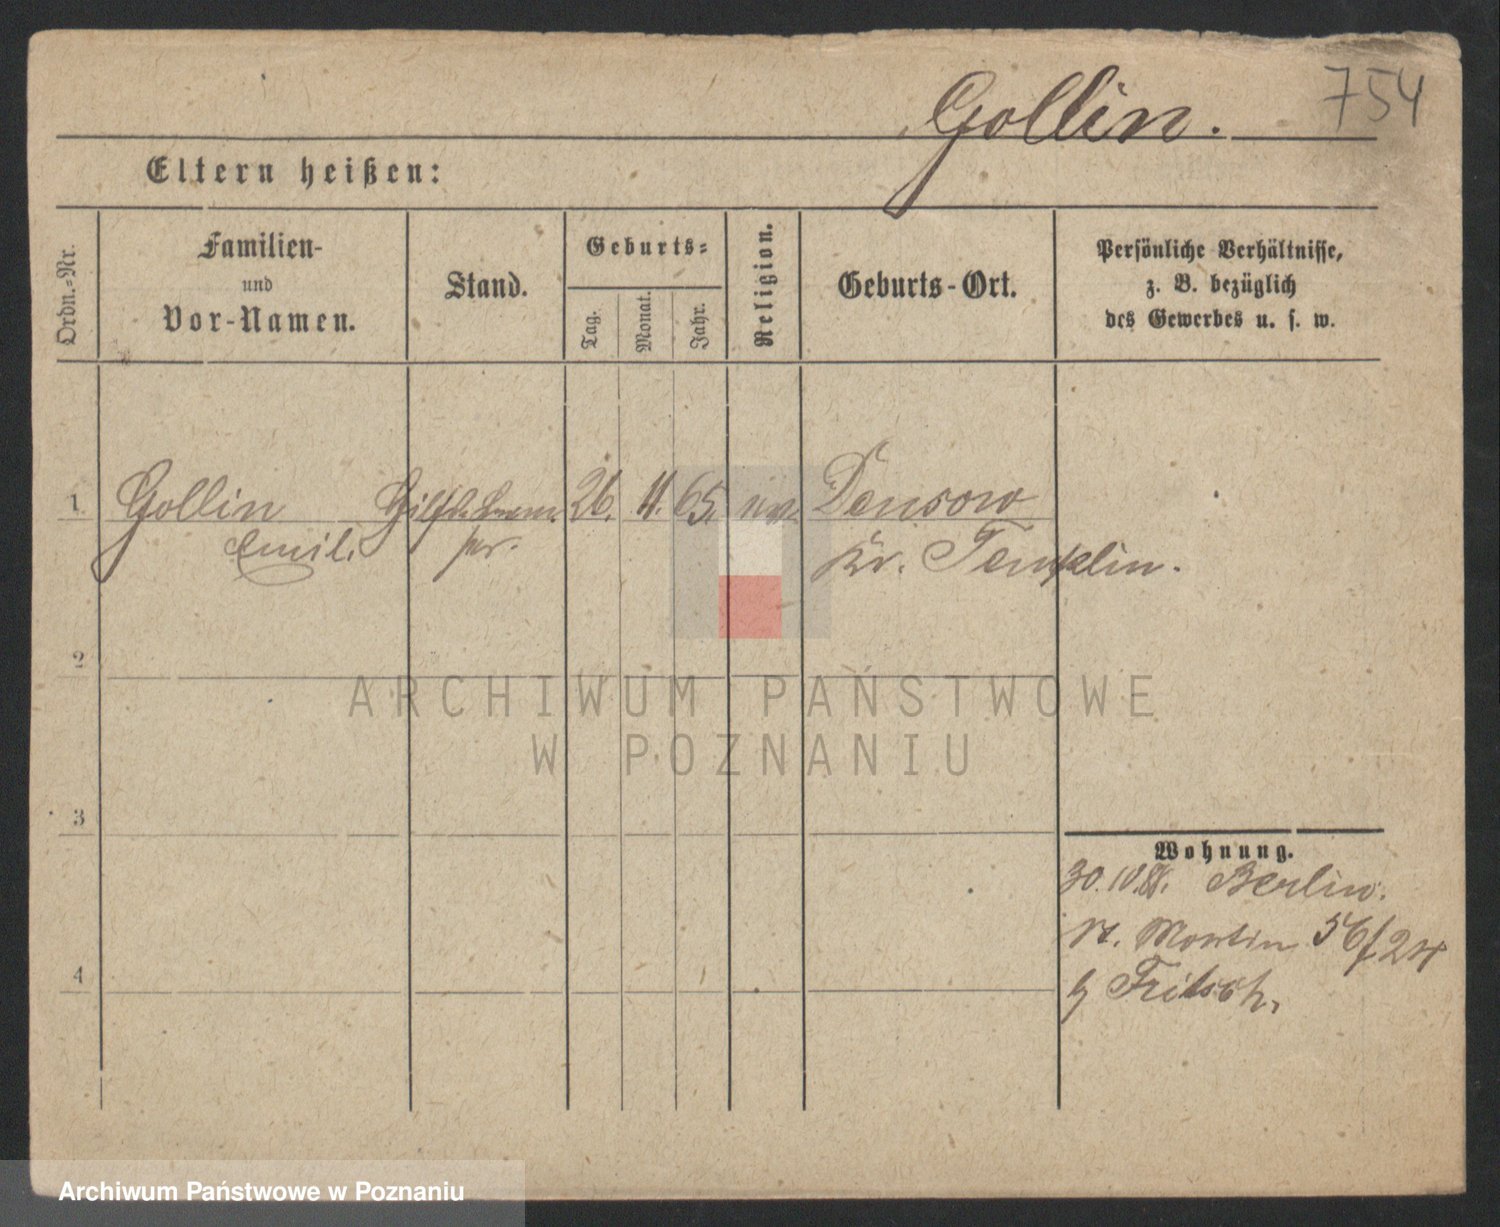 Gollin. 754
Eltern heißen:
Ordn.=Nr.
Familien-
und
Vor-Namen.
Stand.
Geburts=
Tag.
Monat.
Jahr.
Religion.
Geburts-Ort.
Persönliche Verhältnisse,
z. B. bezüglich
des Gewerbes u. s. w.
1. Gollin 26. 11. 65. ev. Densow
Emil. Kr. Templin.
2
3
4
Wohnung.
30. 10. Berlin.
St. Martin 56/
Fritsch.
ARCHIWUM PAŃSTWOWE
W POZNANIU
Archiwum Państwowe w Poznaniu